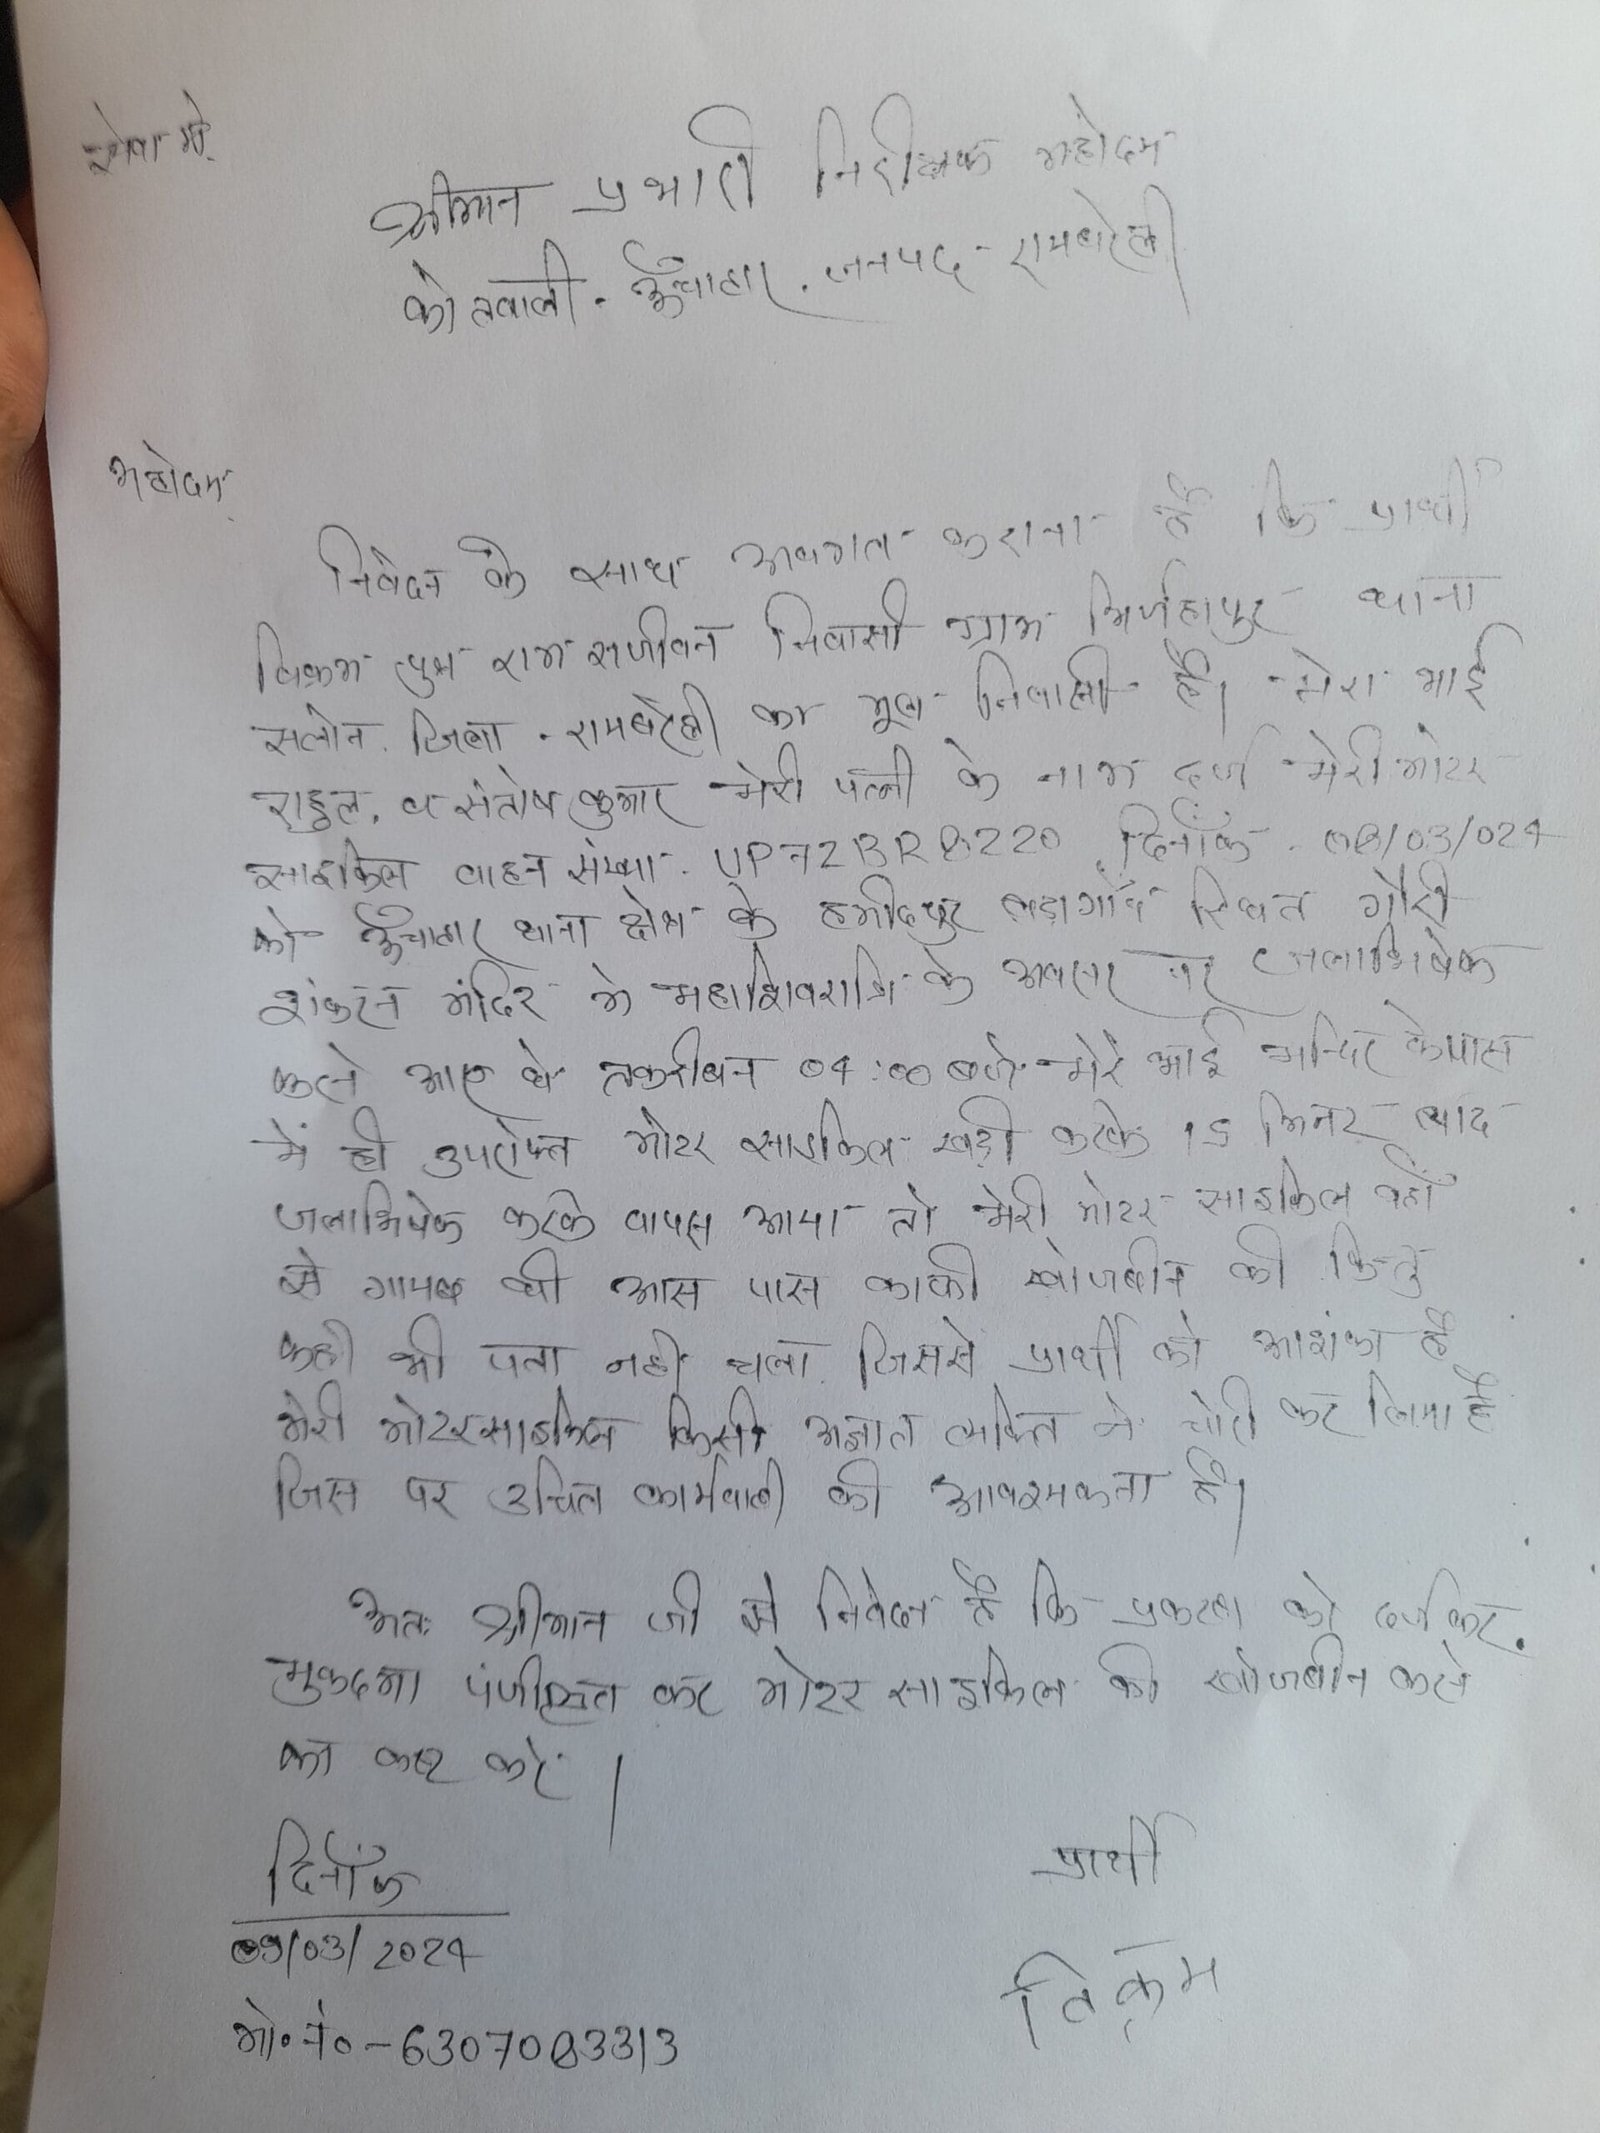 सेवा में,
श्रीमान प्रभारी निरीक्षक महोदय
कोतवाली - ऊँचाहार, जनपद - रायबरेली
महोदय,
निवेदन के साथ अवगत कराना है कि प्रार्थी
विक्रम पुत्र राम सजीवन निवासी ग्राम मिर्जहापुर थाना
सलोन, जिला - रायबरेली का मूल निवासी है। मेरा भाई
राहुल, व संतोष कुमार मेरी पत्नी के नाम दर्ज मेरी मोटर
साइकिल वाहन संख्या - UP72BR8220 दिनाँक - 08/03/024
को ऊँचाहार थाना क्षेत्र के हमीदपुर बड़ागाँव स्थित गौरी
शंकरन मंदिर में महाशिवरात्रि के अवसर पर जलाभिषेक
करने आए थे तकरीबन 04:00 बजे मेरे भाई मन्दिर के पास
में ही उपरोक्त मोटर साइकिल खड़ी करके 15 मिनट बाद
जलाभिषेक करके वापस आया तो मेरी मोटर साइकिल वहाँ
से गायब थी आस पास काफी खोजबीन की किन्तु
कही भी पता नही चला, जिससे प्रार्थी को आशंका है
मेरी मोटरसाइकिल किसी अज्ञात व्यक्ति ने चोरी कर लिया है
जिस पर उचित कार्यवाही की आवश्यकता है।
अतः श्रीमान जी से निवेदन है कि प्रकरण को दर्ज कर,
मुकदमा पंजीकृत कर मोटर साइकिल की खोजबीन करने
का कष्ट करें।
दिनाँक
09/03/2024
मो॰ नं॰ - 6307083313
प्रार्थी
विक्रम